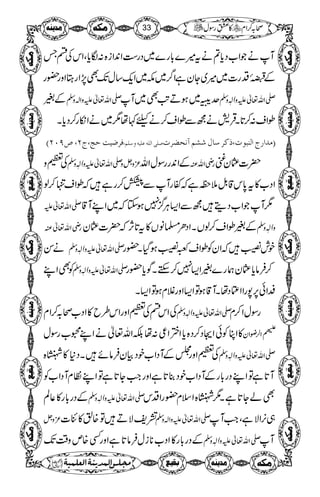 مدینہ مکہ 33 صحابہ کرام کا عشق رسول مکہ مدینہ
آپ نے جواب دیا تم نے یہ میرے بارے میں درست اندازہ نہ لگایا، اس کی قسم جس
کے قبضۂ قدرت میں میری جان ہے اگر میں مکہ میں ایک سال تک بھی پڑا رہتا اور حضور
صلی اللہ تعالٰی علیہ واٰلہٖ وسلم حدیبیہ میں ہوتے تب بھی میں آپ صلی اللہ تعالٰی علیہ واٰلہٖ وسلم کے بغیر
طواف نہ کرتا۔ قریش نے مجھ سے طواف کرنے کیلئے کہا تھا مگر میں نے انکار کر دیا۔
(مدارج النبوت،ذکر سال ششم آنحضرت صلی اللہ علیہ وسلم، فرضیت حج، ج۲، ص۲۰۹)
حضرت عثمان غنی رضی اللہ عنہ کے اندر رسول اللہ عزوجل صلی اللہ تعالٰی علیہ واٰلہٖ وسلم کی تعظیم و
ادب کا یہ پاس قابل ملاحظہ ہے کہ کفار آپ سے پیشکش کر رہے ہیں کہ طواف تنہا کر لو
مگر آپ جواب دیتے ہیں مجھ سے ایسا ہرگز نہیں ہو سکتا کہ میں اپنے آقا صلی اللہ تعالٰی علیہ واٰلہٖ وسلم
کے بغیر طواف کر لوں۔ ادھر مسلمانوں کا یہ تاثر کہ حضرت عثمان رضی اللہ تعالٰی عنہ
خوش نصیب ہیں کہ ان کو طواف کعبہ نصیب ہو گیا۔ حضور صلی اللہ تعالٰی علیہ واٰلہٖ وسلم نے سن
کر فرمایا عثمان ہمارے بغیر ایسا نہیں کر سکتے۔ گویا حضور صلی اللہ تعالٰی علیہ واٰلہٖ وسلم کو بھی اپنے
فدائی پر پورا اعتماد تھا۔ آقا ہو تو ایسا اور غلام ہو تو ایسا۔
رسول اکرم صلی اللہ تعالٰی علیہ واٰلہٖ وسلم کی اس قسم کی تعظیم اور اس طرح کا ادب صحابہ کرام
علیہم الرضوان کا اپنا کوئی ایجاد کردہ یا اختراعی نہ تھا بلکہ اللہ تعالٰی نے اپنے محبوب رسول
صلی اللہ تعالٰی علیہ واٰلہٖ وسلم کی تعظیم اور مجلس کے آداب خود بیان فرمائے ہیں۔ دنیا کا شہنشاہ
آتا ہے تو اپنے دربار کے آداب خود بناتا ہے اور جب جاتا ہے تو اپنے نظام آداب کو
بھی لے جاتا ہے۔ مگر شہنشاہ اسلام حضور اقدس صلی اللہ تعالٰی علیہ واٰلہٖ وسلم کے دربار کا عالم
ہی نرالا ہے، جب آپ صلی اللہ تعالٰی علیہ واٰلہٖ وسلم تشریف لاتے ہیں تو خالق کائنات عزوجل
آپ صلی اللہ تعالٰی علیہ واٰلہٖ وسلم کے دربار کا ادب نازل فرماتا ہے اور کسی خاص وقت تک
مکہ مدینہ بقیع مجلس المدینۃ العلمیۃ